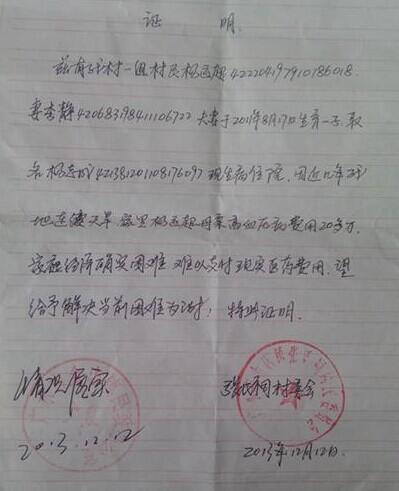 证 明
兹有我村一组村民杨运超422204197910186018.
妻李静420683198411106722 夫妻于2011年8月17日生育一子.取
名杨志成421381201108176097 现生病住院.因近几年我
地连续天旱.家里杨运超母亲高血压药费用20多万.
该家经济确实困难 难以支付现实医药费用.望
给予解决当前困难为谢! 特此证明.
情况属实
村委会
2013.12.12
2013年12月12日.